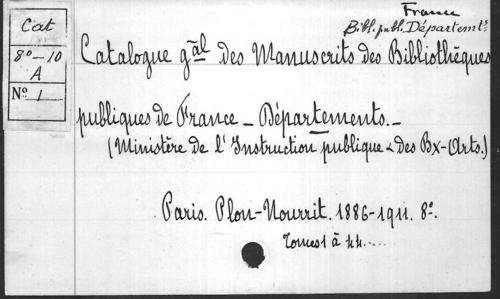 France
Bibl. publ. Départemts
Cat
8º-10
A
Nº 1
Catalogue gâl des Manuscrits des Bibliothèques
publiques de France - Départements. -
(Ministère de l'Instruction publique & des Bx-Arts.)
Paris. Plon-Nourrit. 1886-1911. 8º.
Tomes 1 à 44.....